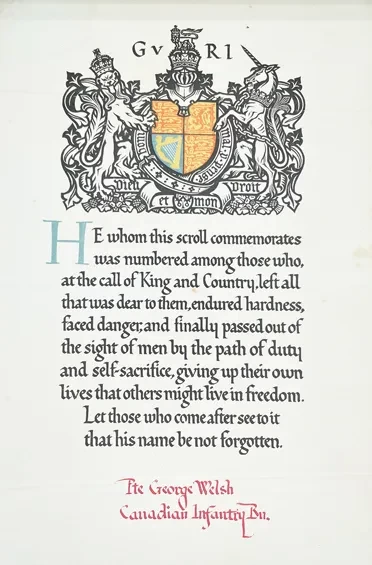 GV RI
Honi soit qui mal y pense
Dieu et mon Droit
HE whom this scroll commemorates
was numbered among those who,
at the call of King and Country, left all
that was dear to them, endured hardness,
faced danger, and finally passed out of
the sight of men by the path of duty
and self-sacrifice, giving up their own
lives that others might live in freedom.
Let those who come after see to it
that his name be not forgotten.
Pte George Welsh
Canadian Infantry Bn.